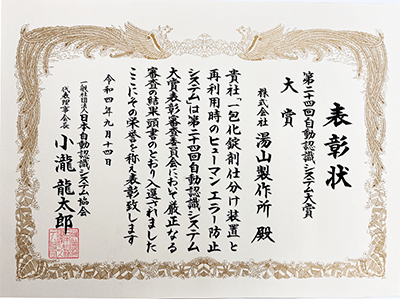 表彰状
第二十四回自動認識システム大賞
大賞
株式会社 湯山製作所 殿
貴社「一包化錠剤仕分け装置」と
再利用時のヒューマンエラー防止
システム」は第二十四回自動認識システム
大賞表彰審査委員会において厳正なる
審査の結果頭書のとおり入選されました
ここにその栄誉を称え表彰致します
令和四年九月十四日
一般社団法人日本自動認識システム協会
代表理事会長 小瀧龍太郎